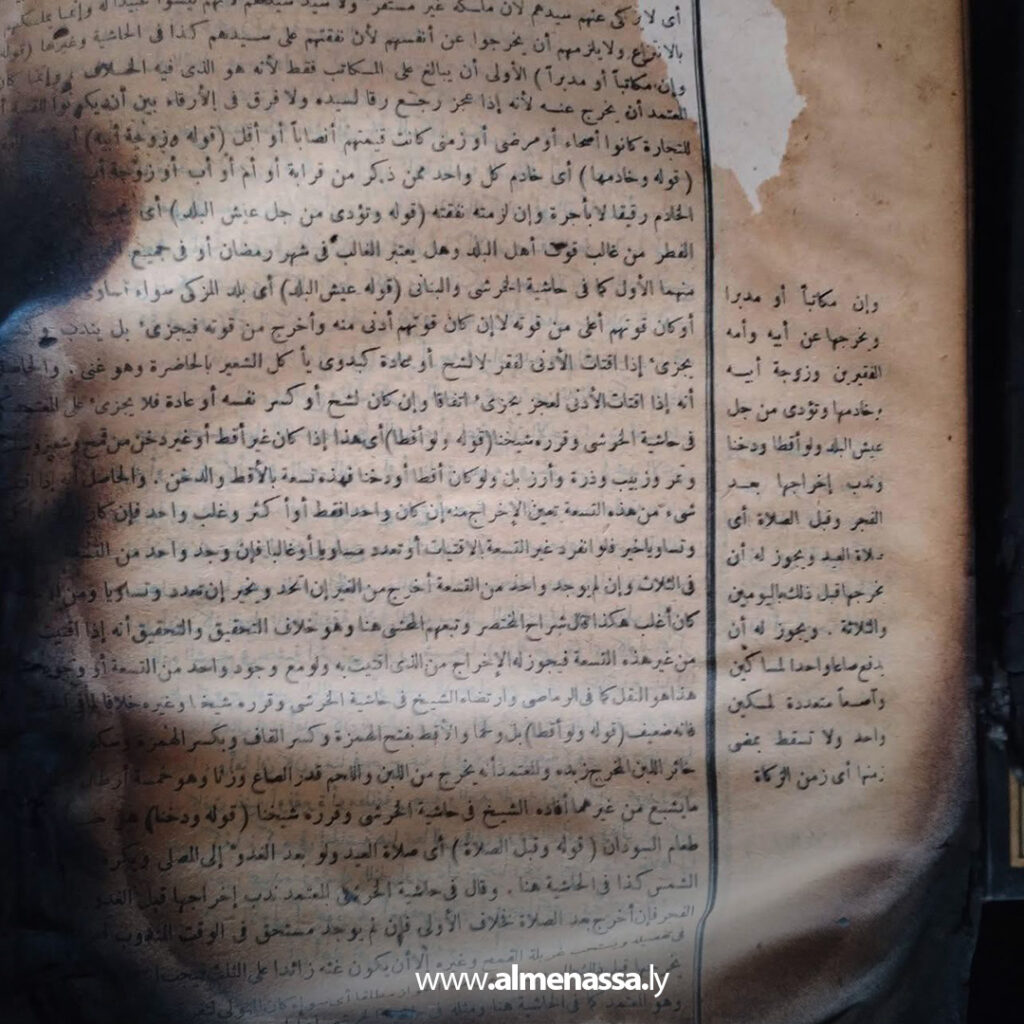 أى لا يزكى عنهم سيدهم لأن ملكه غير مستقر ولا سيد
بالانتزاع ولا يلزمهم أن يخرجوا عن أنفسهم لأن نفقتهم على سيدهم كذا فى الحاشية وغيرها (قوله
وإن مكاتباً أو مدبراً) الأولى أن يبالغ على المكاتب فقط لأنه هو الذى فيه الخلاف وإنما كان
المعتمد أن يخرج عنه لأنه إذا عجز رجع رقا لسيده ولا فرق فى الأرقاء بين أن يكونوا للقنية أو
للتجارة كانوا أصحاء أو مرضى أو زمنى كانت قيمتهم أنصاباً أو أقل (قوله وزوجة أبيه) أى
(قوله وخادمها) أى خادم كل واحد ممن ذكر من قرابة أو أم أو أب أو زوجة أب
الخادم رقيقا لا بأجرة وإن لزمته نفقته (قوله وتؤدى من جل عيش البلد) أى
الفطر من غالب قوت أهل البلد وهل يعتبر الغالب فى شهر رمضان أو فى جميع
منهما الأول كما فى حاشية الخرشى والبنانى (قوله عيش البلد) أى بلد المزكى سواء ساوى
أو كان قوتهم أعلى من قوته لا إن كان قوتهم أدنى منه وأخرج من قوته فيجزىء بل يندب
يجزىء إذا اقتات الأدنى لفقر لا لشح أو عادة كبدوى يأكل الشعير بالحاضرة وهو غنى . والحاصل
أنه إذا اقتات الأدنى لعجز يجزىء اتفاقا وإن كان لشح أو كسر نفسه أو عادة فلا يجزىء على المعتمد
فى حاشية الخرشى وقرره شيخنا (قوله ولو أقطا) أى هذا إذا كان غير أقط أو غير دخن من قمح وشعير وسلت
وتمر وزبيب وذرة وأرز بل ولو كان أقطا أو دخنا فهذه تسعة بالأقط والدخن . والحاصل أنه إذا
شىء من هذه التسعة تعين الإخراج منه إن كان واحدا فقط أو أكثر وغلب واحد فإن كان
وتساويا خير فلو انفرد غير التسعة بالاقتيات أو تعدد مساويا أو غالبا فإن وجد واحد من التسعة
فى الثلاث وإن لم يوجد واحد من التسعة أخرج من الغير إن اتحد ويخير إن تعدد وتساويا ومن
كان أغلب هكذا قال شراح المختصر وتبعهم المحشى هنا وهو خلاف التحقيق والتحقيق أنه إذا اقتيت
من غير هذه التسعة فيجوز له الإخراج من الذى اقتيت به ولو مع وجود واحد من التسعة أو وجود
هذا هو النقل كما فى الرماصى وارتضاه الشيخ فى حاشية الخرشى وقرره شيخنا وغيره خلافا لما فى
فإنه ضعيف (قوله ولو أقطا) بل ولحما والأقط بفتح الهمزة وكسر القاف وبكسر الهمزة وسكون
خاثر اللبن المخرج زبده والمعتمد أنه يخرج من اللبن واللحم قدر الصاع وزنا وهو خمسة أرطال
ما يشبع من غيرهما أفاده الشيخ فى حاشية الخرشى وقرره شيخنا (قوله ودخنا) هو
طعام السودان (قوله وقبل الصلاة) أى صلاة العيد ولو بعد الغدو إلى المصلى ويكره
الشمس كذا فى الحاشية هنا . وقال فى حاشية الخرشى المعتمد ندب إخراجها قبل الغدو
الفجر فإن أخرج بعد الصلاة خلاف الأولى فإن لم يوجد مستحق فى الوقت المندوب
غربلة القمح وغيره إلا أن يكون غثه زائدا على الثلث فيجب
وهو المعتمد كما فى الحاشية هنا ومثله
وإن مكاتباً أو مدبرا
ويخرجها عن أبيه وأمه
الفقيرين وزوجة أبيه
وخادمها وتؤدى من جل
عيش البلد ولو أقطا ودخنا
وندب إخراجها بعد
الفجر وقبل الصلاة أى
صلاة العيد ويجوز له أن
يخرجها قبل ذلك باليومين
والثلاثة . ويجوز له أن
يدفع صاعا واحدا لمساكين
وآصعاً متعددة لمسكين
واحد ولا تسقط بمضى
زمنها أى زمن الزكاة
www.almenassa.ly